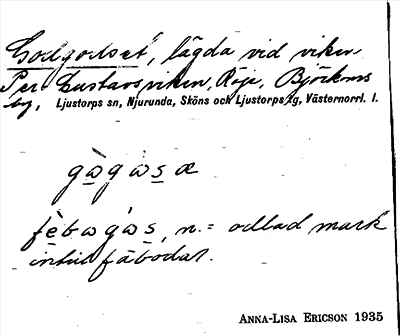 Godgodset, lägda vid viken,
Per Gustavsviken, Röje, Björkoms
by, Ljustorps sn, Njurunda, Sköns och Ljustorps tg, Västernorrl. l.
n. = odlad mark
intill fäbodar.
ANNA-LISA ERICSON 1935